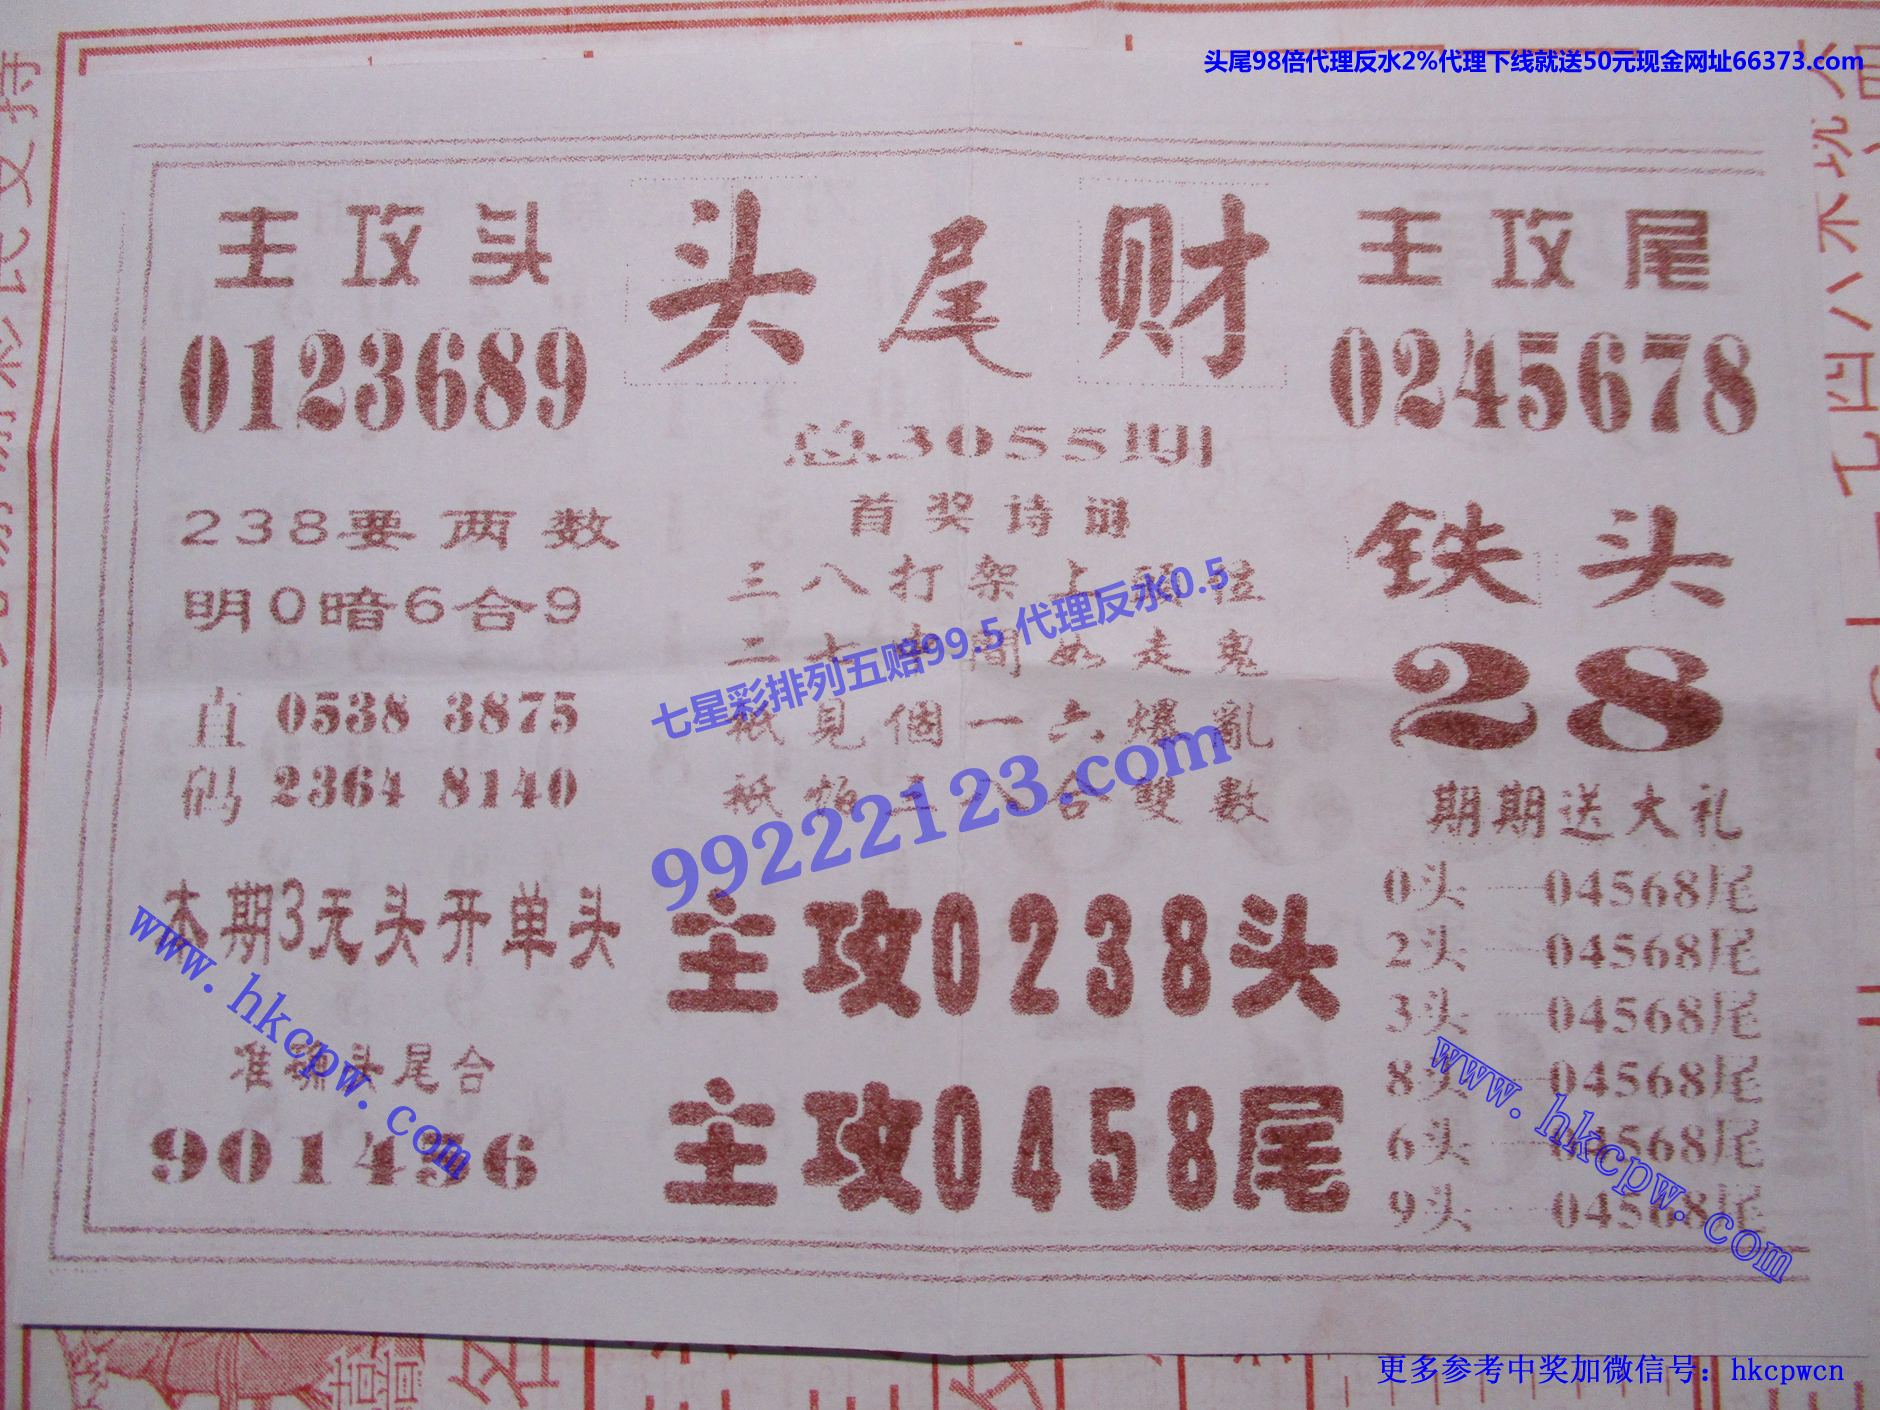 头尾98倍代理反水2%代理下线就送50元现金网址66373.com
主攻头
0123689
头尾财
主攻尾
0245678
总3055期
首奖诗谜
238要两数
明0暗6合9
直 0538 3875
码 2364 8140
三八打架上頭
二七中間如走鬼
祇見個一六爆亂
祇 合雙數
七星彩排列五赔99.5 代理反水0.5
99222123.com
铁头
28
期期送大礼
0头 04568尾
2头 04568尾
3头 04568尾
8头 04568尾
6头 04568尾
9头 04568尾
本期3天头开单头
准确头尾合
901456
主攻0238头
主攻0458尾
www.hkcpw.com
www.hkcpw.com
更多参考中奖加微信号：hkcpwcn